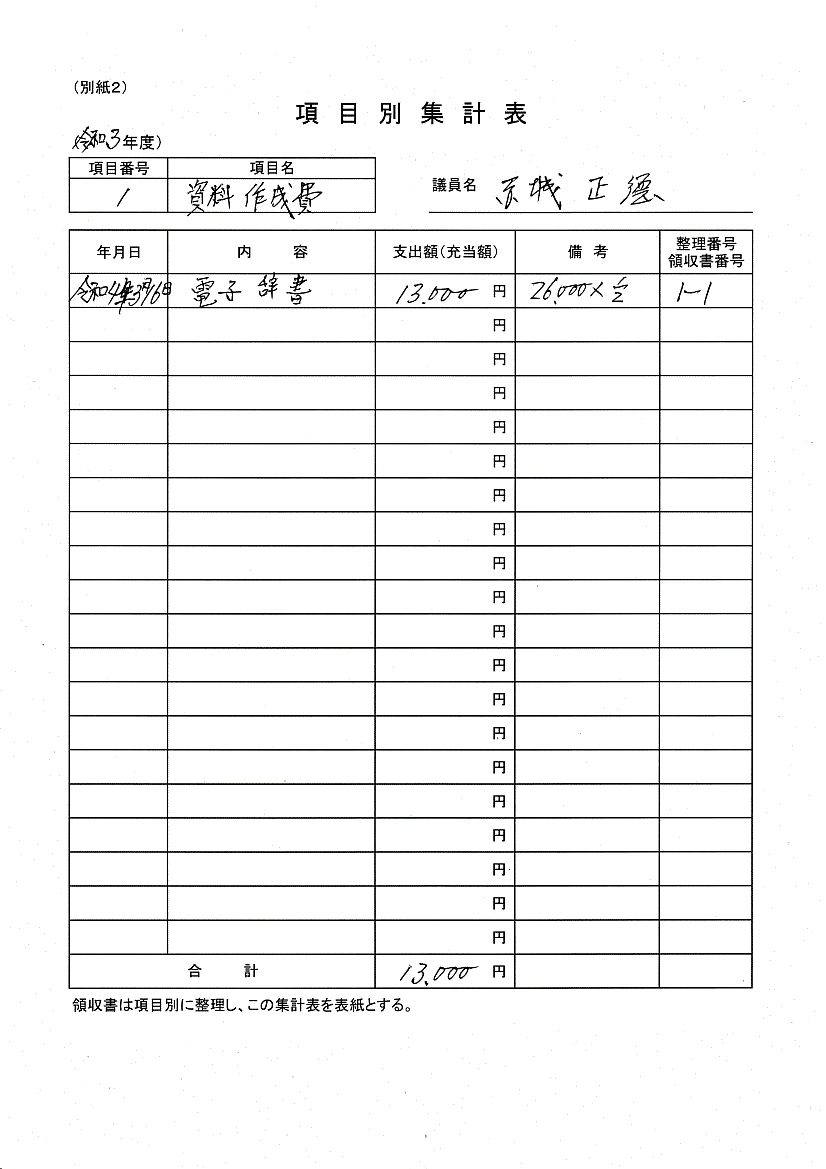 (別紙2)
項目別集計表
令和3年度)
項目番号 項目名
1 資料作成費
議員名 京城 正德
年月日 内容 支出額(充当額) 備考 整理番号 領収書番号
令和4年3月16日 電子辞書 13,000 円 26,000×1/2 1-1
円
円
円
円
円
円
円
円
円
円
円
円
円
円
円
円
円
円
円
合計 13,000 円
領収書は項目別に整理し、この集計表を表紙とする。